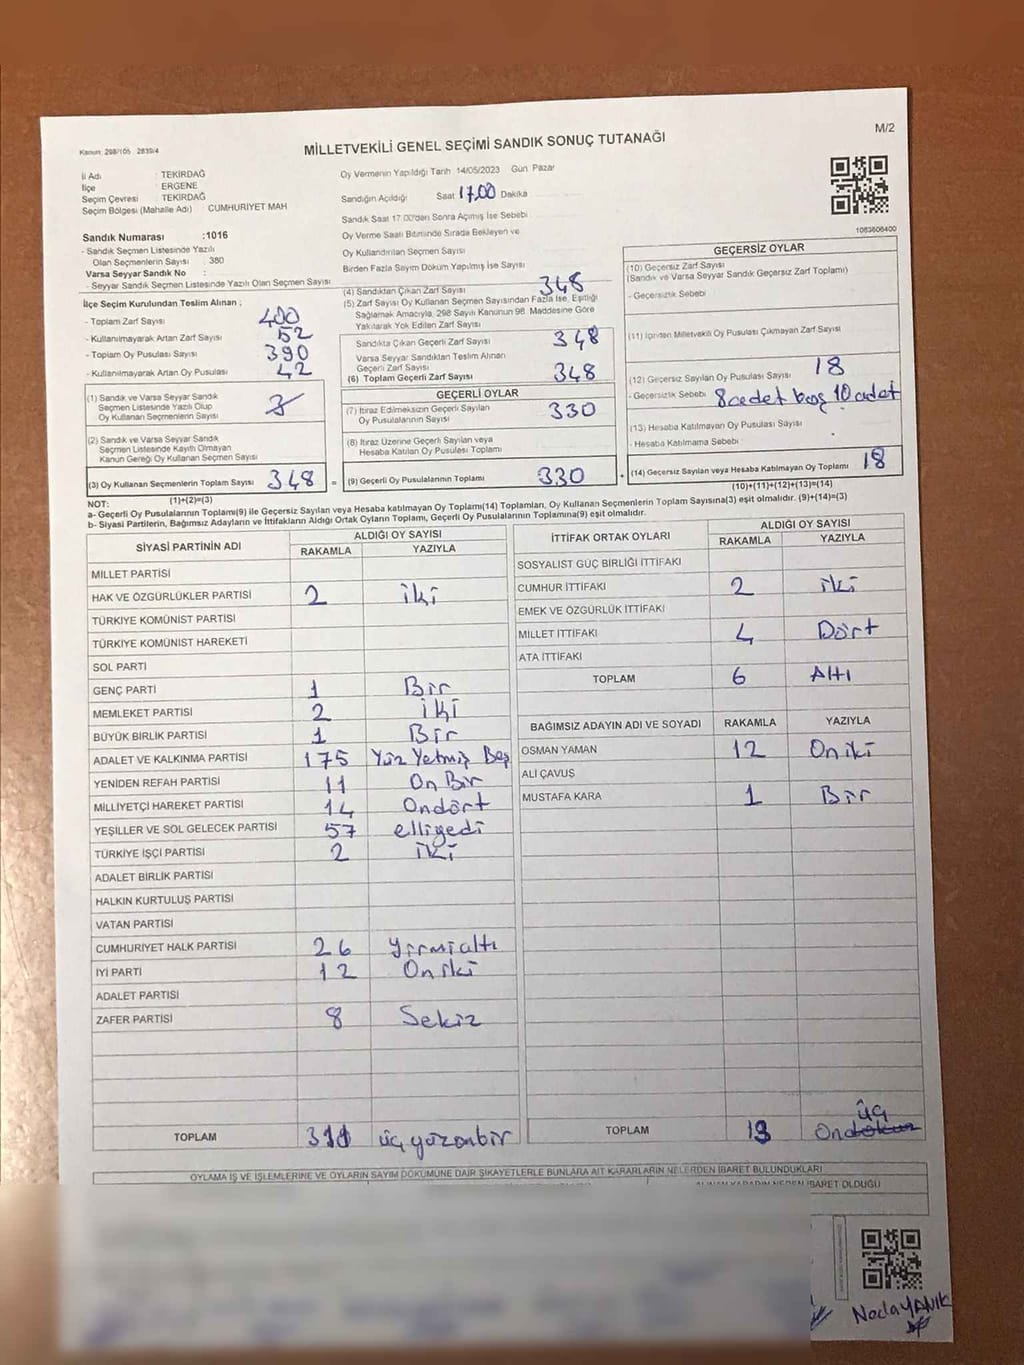 M/2
Kanun: 298/105 2839/4
MİLLETVEKİLİ GENEL SEÇİMİ SANDIK SONUÇ TUTANAĞI
İl Adı : TEKİRDAĞ
İlçe : ERGENE
Seçim Çevresi : TEKİRDAĞ
Seçim Bölgesi (Mahalle Adı) : CUMHURİYET MAH
Sandık Numarası :1016
- Sandık Seçmen Listesinde Yazılı
Olan Seçmenlerin Sayısı : 380
Varsa Seyyar Sandık No :
- Seyyar Sandık Seçmen Listesinde Yazılı Olan Seçmen Sayısı :
Oy Vermenin Yapıldığı Tarih 14/05/2023 Gün Pazar
Sandığın Açıldığı Saat 17.00 Dakika
Sandık Saat 17:00'den Sonra Açılmış İse Sebebi
Oy Verme Saati Bitiminde Sırada Bekleyen ve
Oy Kullandırılan Seçmen Sayısı
Birden Fazla Sayım Döküm Yapılmış İse Sayısı
1083606400
İlçe Seçim Kurulundan Teslim Alınan ;
- Toplam Zarf Sayısı 400
- Kullanılmayarak Artan Zarf Sayısı 52
- Toplam Oy Pusulası Sayısı 390
- Kullanılmayarak Artan Oy Pusulası 42
(1) Sandık ve Varsa Seyyar Sandık
Seçmen Listesinde Yazılı Olup
Oy Kullanan Seçmenlerin Sayısı
(2) Sandık ve Varsa Seyyar Sandık
Seçmen Listesinde Kayıtlı Olmayan
Kanun Gereği Oy Kullanan Seçmen Sayısı
(3) Oy Kullanan Seçmenlerin Toplam Sayısı 348 =
(1)+(2)=(3)
(4) Sandıktan Çıkan Zarf Sayısı 348
(5) Zarf Sayısı Oy Kullanan Seçmen Sayısından Fazla İse, Eşitliği
Sağlamak Amacıyla, 298 Sayılı Kanunun 98. Maddesine Göre
Yakılarak Yok Edilen Zarf Sayısı
Sandıkta Çıkan Geçerli Zarf Sayısı 348
Varsa Seyyar Sandıktan Teslim Alınan
Geçerli Zarf Sayısı
(6) Toplam Geçerli Zarf Sayısı 348
GEÇERLİ OYLAR
(7) İtiraz Edilmeksizin Geçerli Sayılan
Oy Pusulalarının Sayısı 330
(8) İtiraz Üzerine Geçerli Sayılan veya
Hesaba Katılan Oy Pusulası Toplamı
(9) Geçerli Oy Pusulalarının Toplamı 330 +
GEÇERSİZ OYLAR
(10) Geçersiz Zarf Sayısı
(Sandık ve Varsa Seyyar Sandık Geçersiz Zarf Toplamı)
- Geçersizlik Sebebi
(11) İçinden Milletvekili Oy Pusulası Çıkmayan Zarf Sayısı
(12) Geçersiz Sayılan Oy Pusulası Sayısı 18
- Geçersizlik Sebebi 8 adet boş 10 adet
(13) Hesaba Katılmayan Oy Pusulası Sayısı
- Hesaba Katılmama Sebebi
(14) Geçersiz Sayılan veya Hesaba Katılmayan Oy Toplamı 18
(10)+(11)+(12)+(13)=(14)
NOT:
a- Geçerli Oy Pusulalarının Toplamı(9) ile Geçersiz Sayılan veya Hesaba Katılmayan Oy Toplamı(14) Toplamları, Oy Kullanan Seçmenlerin Toplam Sayısına(3) eşit olmalıdır. (9)+(14)=(3)
b- Siyasi Partilerin, Bağımsız Adayların ve İttifakların Aldığı Ortak Oyların Toplamı, Geçerli Oy Pusulalarının Toplamına(9) eşit olmalıdır.
SİYASİ PARTİNİN ADI ALDIĞI OY SAYISI
RAKAMLA YAZIYLA
MİLLET PARTİSİ
HAK VE ÖZGÜRLÜKLER PARTİSİ 2 iki
TÜRKİYE KOMÜNİST PARTİSİ
TÜRKİYE KOMÜNİST HAREKETİ
SOL PARTİ
GENÇ PARTİ 1 Bir
MEMLEKET PARTİSİ 2 iki
BÜYÜK BİRLİK PARTİSİ 1 Bir
ADALET VE KALKINMA PARTİSİ 175 Yüz Yetmiş Beş
YENİDEN REFAH PARTİSİ 11 On Bir
MİLLİYETÇİ HAREKET PARTİSİ 14 Ondört
YEŞİLLER VE SOL GELECEK PARTİSİ 57 elliyedi
TÜRKİYE İŞÇİ PARTİSİ 2 iki
ADALET BİRLİK PARTİSİ
HALKIN KURTULUŞ PARTİSİ
VATAN PARTİSİ
CUMHURİYET HALK PARTİSİ 26 yirmialtı
İYİ PARTİ 12 Oniki
ADALET PARTİSİ
ZAFER PARTİSİ 8 Sekiz
TOPLAM 311 üçyüzonbir
İTTİFAK ORTAK OYLARI ALDIĞI OY SAYISI
RAKAMLA YAZIYLA
SOSYALİST GÜÇ BİRLİĞİ İTTİFAKI
CUMHUR İTTİFAKI 2 iki
EMEK VE ÖZGÜRLÜK İTTİFAKI
MİLLET İTTİFAKI 4 Dört
ATA İTTİFAKI
TOPLAM 6 Altı
BAĞIMSIZ ADAYIN ADI VE SOYADI RAKAMLA YAZIYLA
OSMAN YAMAN 12 Oniki
ALİ ÇAVUŞ
MUSTAFA KARA 1 Bir
üç
TOPLAM 13 Ondokuz
OYLAMA İŞ VE İŞLEMLERİNE VE OYLARIN SAYIM DÖKÜMÜNE DAİR ŞİKAYETLERLE BUNLARA AİT KARARLARIN NELERDEN İBARET BULUNDUKLARI
ALINAN KARARIN NEDEN İBARET OLDUĞU
Neda YANIK